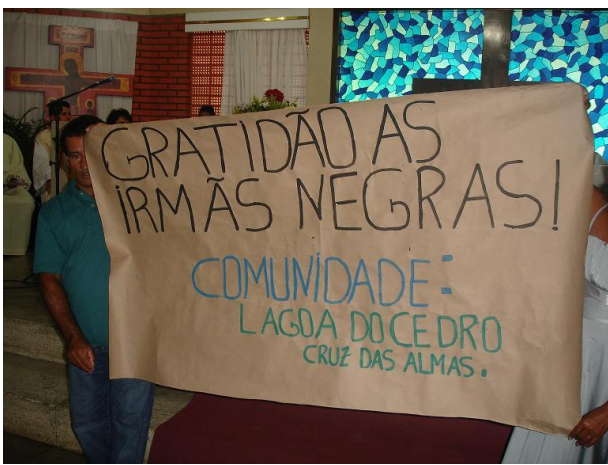 GRATIDÃO AS
IRMÃS NEGRAS!
COMUNIDADE:
LAGOA DO CEDRO
CRUZ DAS ALMAS.